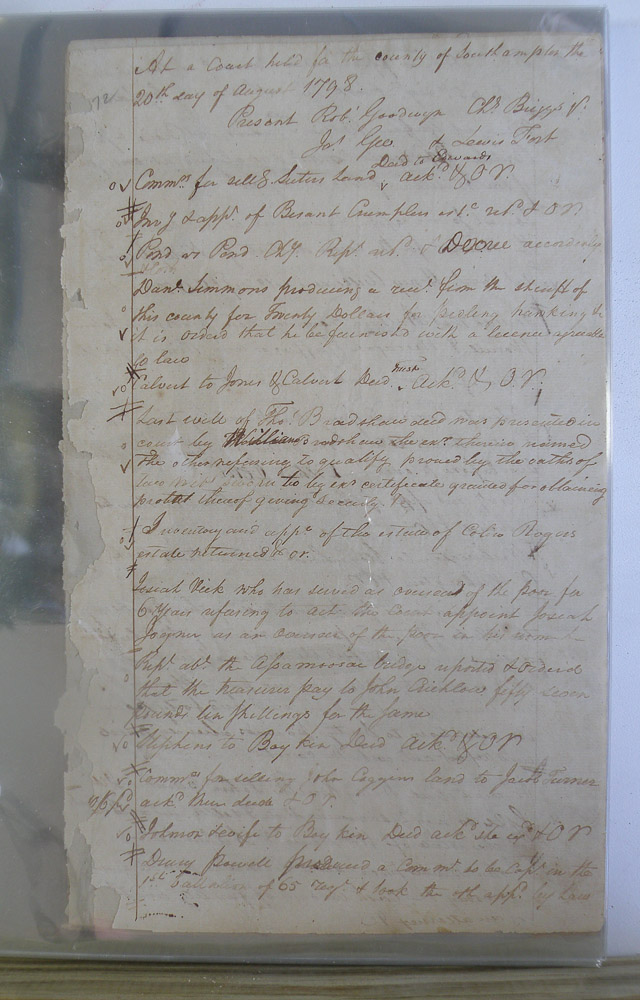 At a Court held for the county of Southampton the
20th day of August 1798.
172
Present Robt Goodwyn Chs Briggs &
Jas Geo & Lewis Fort
Deed to Edwards
Commrs for sell Land ackd & O R
Invy & appt of Besant Crumpler retd & O R
Pond vs Pond Chy Rept retd & Decree accordingly
Danl Simmons producing a rect from the sheriff of
this county for Twenty Dollars for pedling hawking &
it is ordered that he be furnished with a licence agreeable
to law
Calvert to Jones & Calvert Deed ackd & O R
Last will of Thos Bradshaw decd was presented in
court by William Bradshaw the exr therein named
the other refusing to qualify proved by the oaths of
to by exr certificate granted for obtaining
probat thereof giving security &c
Inventory and appt of the estate of Colin Rogers
estate returned & or
Josiah Vick who has served as overseer of the poor for
6 Years refusing to act the court appoint Joseah
Joyner as an overseer of the poor in his room
Rept abt the Assamoosac bridge reported & ordered
that the treasurer pay to John fifty seven
pounds ten shillings for the same
Stephens to Boykin Deed ackd & O R
Commrs for selling John Coggins land to Jacob Turner
ackd their deede & O R
& wife to Boykin Deed ackd she exd & O R
Drury Powell produced a Commn to be Capt in the
1st Battalion of 65 Regt & took the oth appd by Law